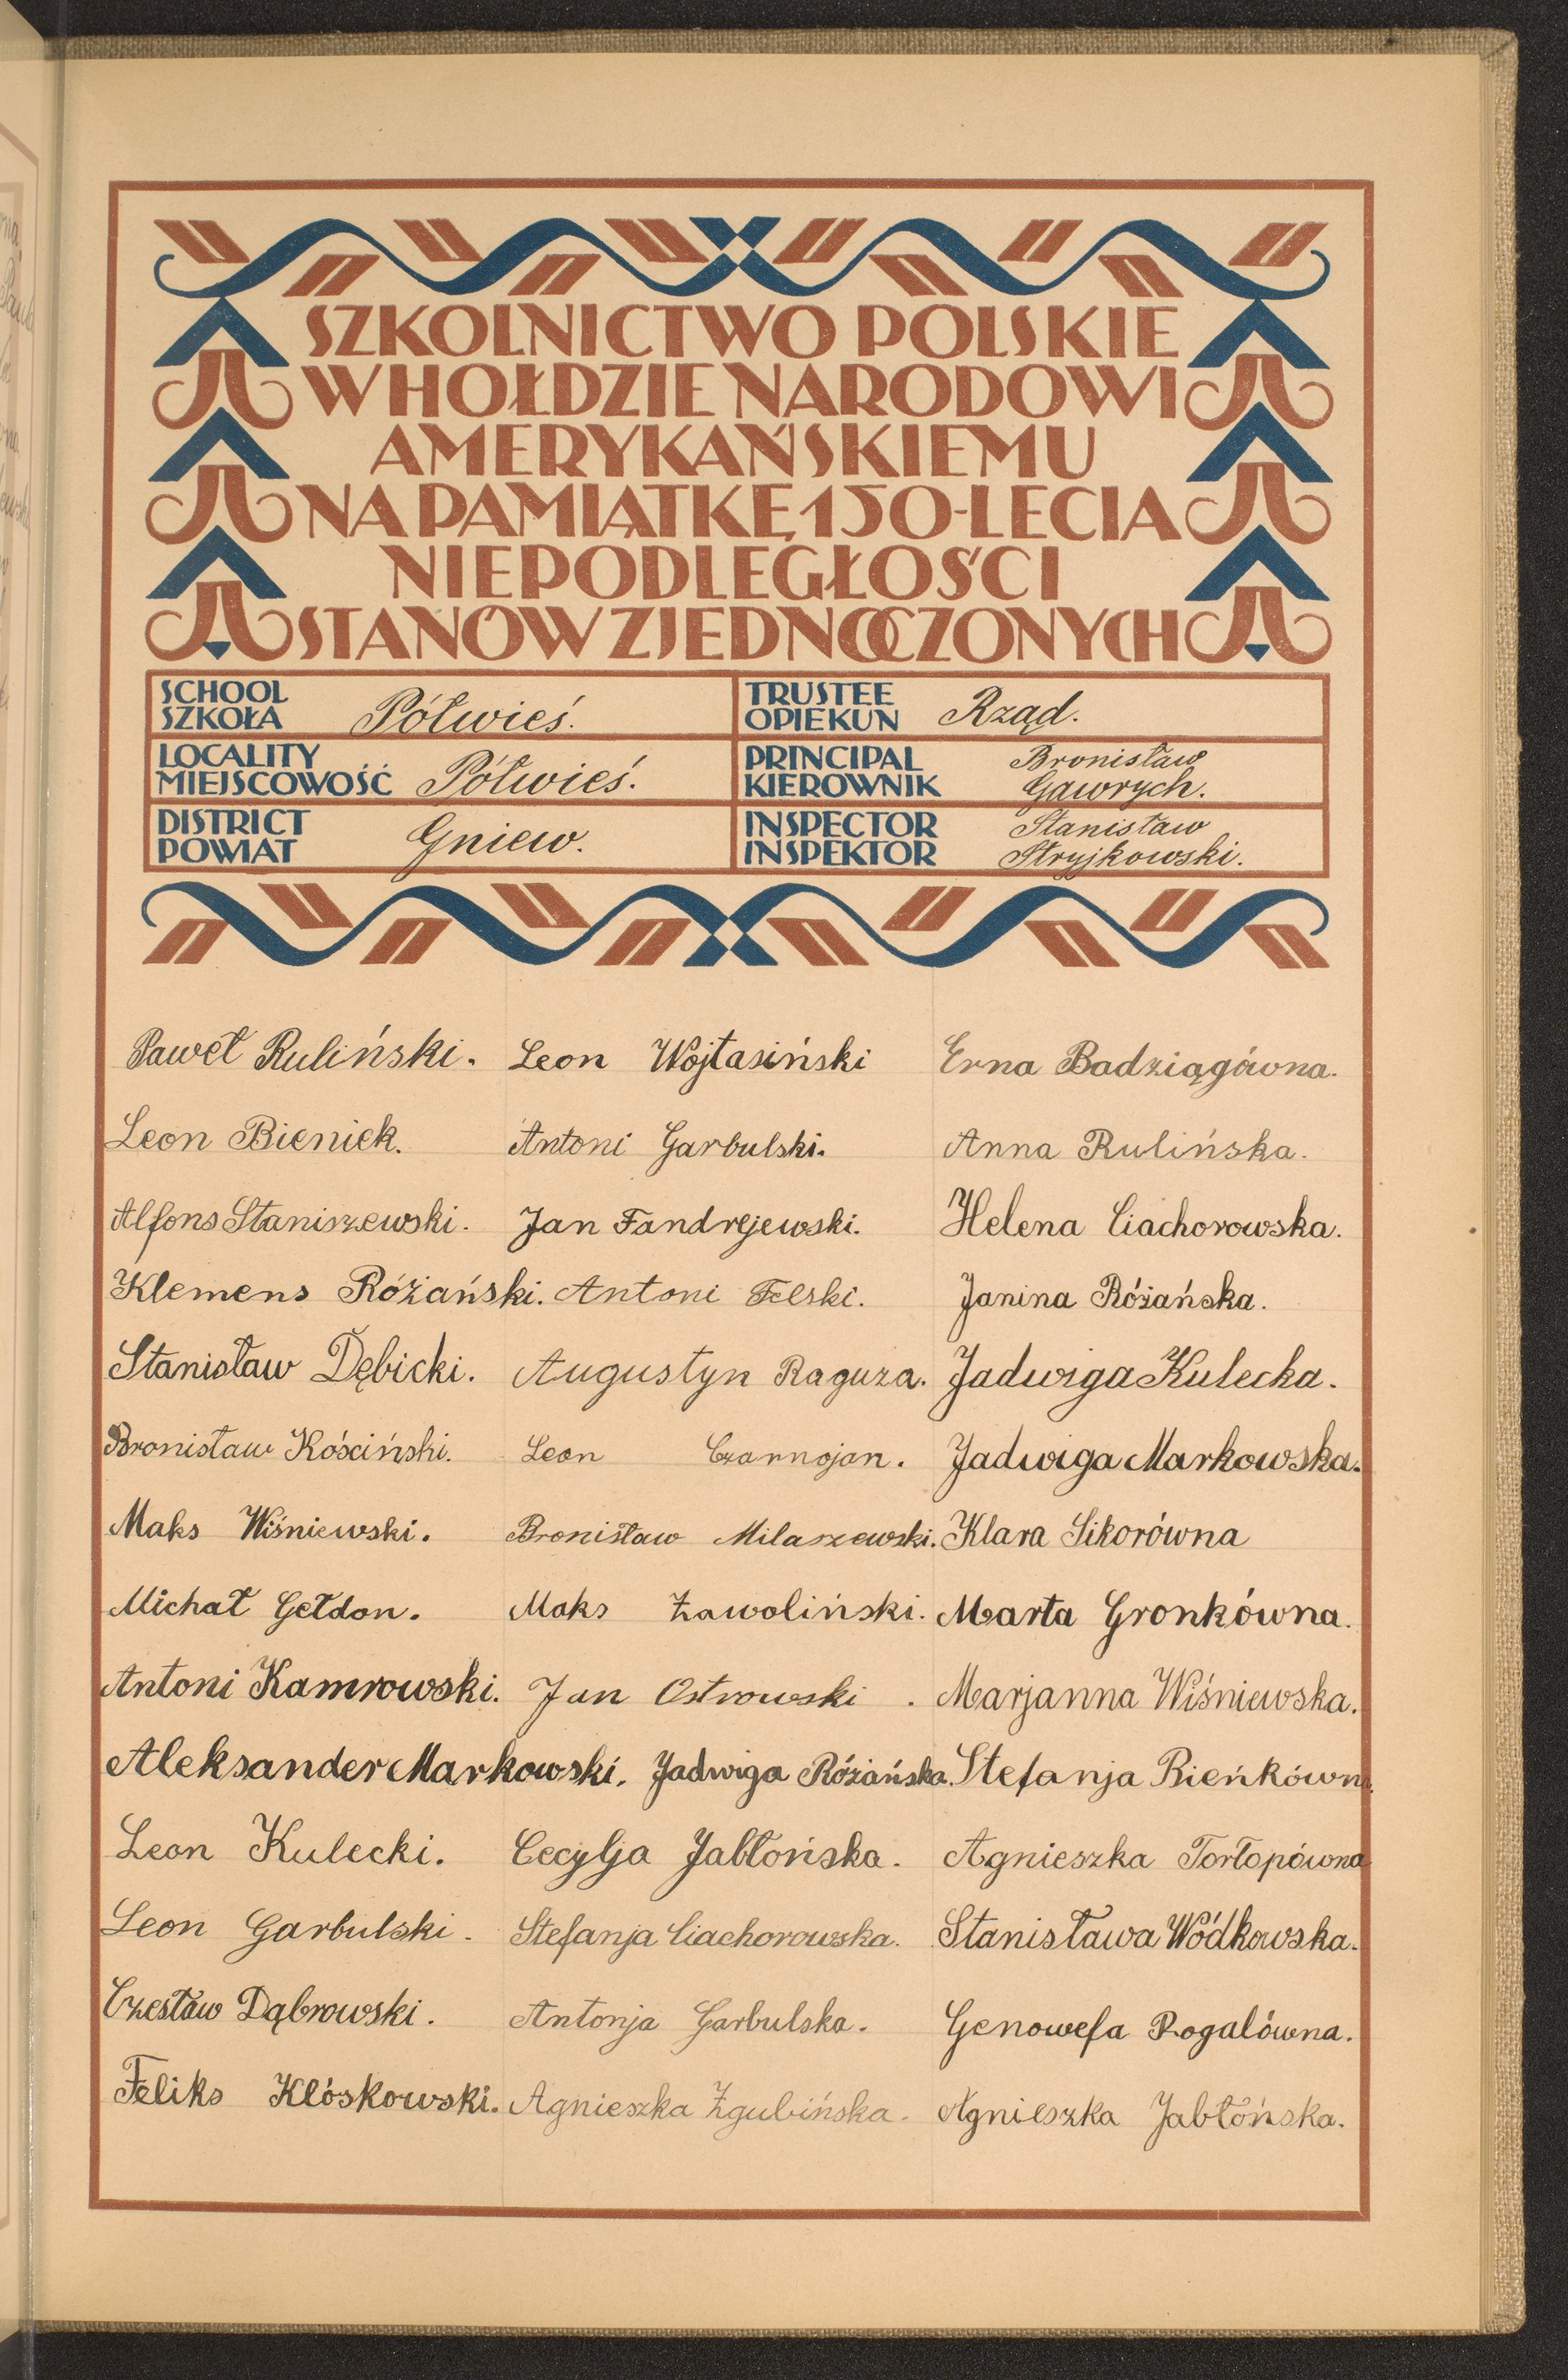 SZKOLNICTWO POLSKIE
W HOŁDZIE NARODOWI
AMERYKAŃSKIEMU
NA PAMIĄTKĘ 150-LECIA
NIEPODLEGŁOŚCI
STANÓW ZJEDNOCZONYCH
SCHOOL
SZKOŁA Półwieś.
TRUSTEE
OPIEKUN Rząd.
LOCALITY
MIEJSCOWOŚĆ Półwieś.
PRINCIPAL
KIEROWNIK Bronisław
Gawrych.
DISTRICT
POWIAT Gniew.
INSPECTOR
INSPEKTOR Stanisław
Stryjkowski.
Paweł Ruliński.
Leon Bieniek.
Alfons Staniszewski.
Klemens Różański.
Stanisław Dębicki.
Bronisław Kościński.
Maks Wiśniewski.
Michał Gełdon.
Antoni Kamrowski.
Aleksander Markowski.
Leon Kulecki.
Leon Garbulski.
Czesław Dąbrowski.
Feliks Klóskowski.
Leon Wojtasiński
Antoni Garbulski.
Jan Fandrejewski.
Antoni Felski.
Augustyn Raguza.
Leon Czarnojan.
Bronisław Milaszewski.
Maks Zawoliński.
Jan Ostrowski.
Jadwiga Różańska.
Cecylja Jabłońska.
Stefanja Ciachorowska.
Antonja Garbulska.
Agnieszka Zgubińska.
Erna Badziągówna.
Anna Rulińska.
Helena Ciachorowska.
Janina Różańska.
Jadwiga Kulecka.
Jadwiga Markowska.
Klara Sikorówna
Marta Gronkówna.
Marjanna Wiśniewska.
Stefanja Bieńkówna.
Agnieszka Tortopówna
Stanisława Wódkowska.
Genowefa Rogalówna.
Agnieszka Jabłońska.